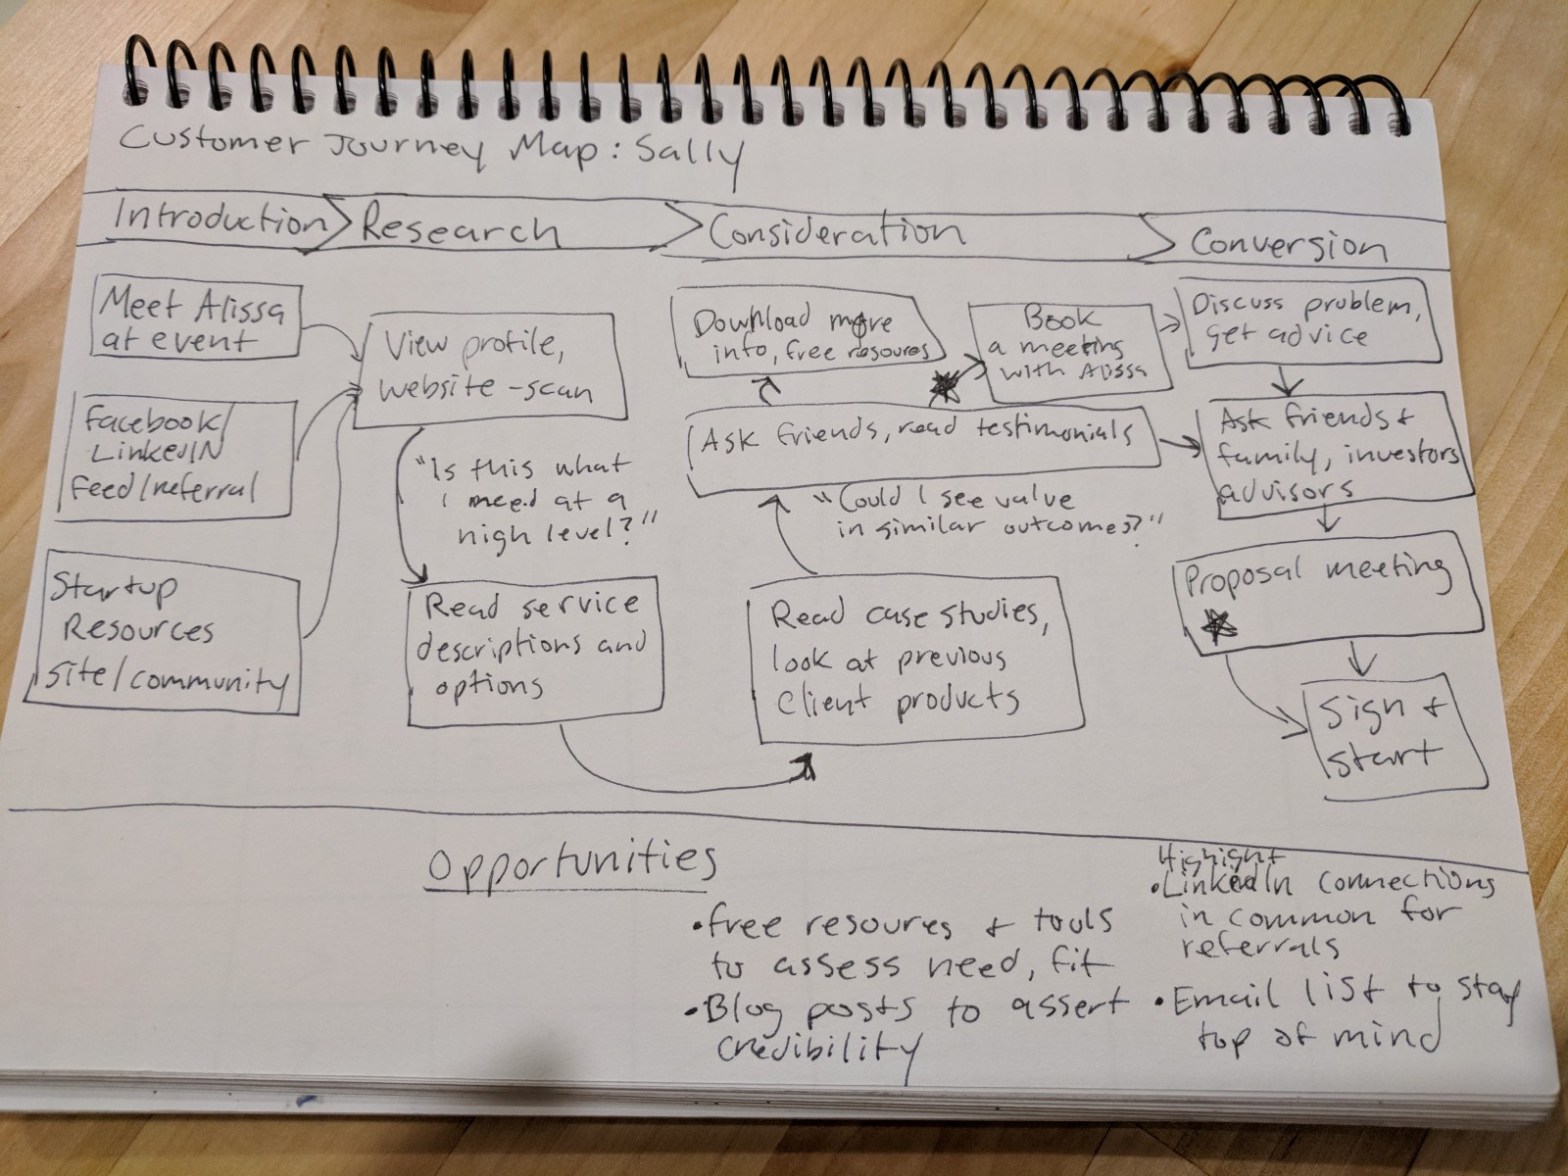 Customer Journey Map: Sally
Introduction
Research
Consideration
Conversion
Meet Alissa
at event
Facebook/
LinkedIN
Feed/referral
Startup
Resources
site/community
View profile,
website-scan
"Is this what
I need at a
high level?"
Read service
descriptions and
options
Download more
info, free resoures
Book
a meeting
with Alissa
Ask friends, read testimonials
"Could I see value
in similar outcomes?"
Read case studies,
look at previous
client products
Discuss problem,
get advice
Ask friends +
family, investors
advisors
Proposal meeting
Sign +
start
Opportunities
• free resoures + tools
to assess need, fit
• Blog posts to assert
credibility
Highlight
• LinkedIn connections
in common for
referrals
• Email list to stay
top of mind